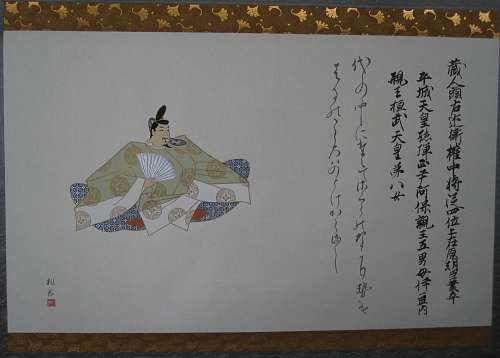 蔵人頭右近衛権中将従四位上在原朝臣業平
平城天皇孫弾正尹阿保親王五男母伊豆内
親王桓武天皇第八女
の中にたえてさくらのなかり勢は
はるのこころはのとけからまし